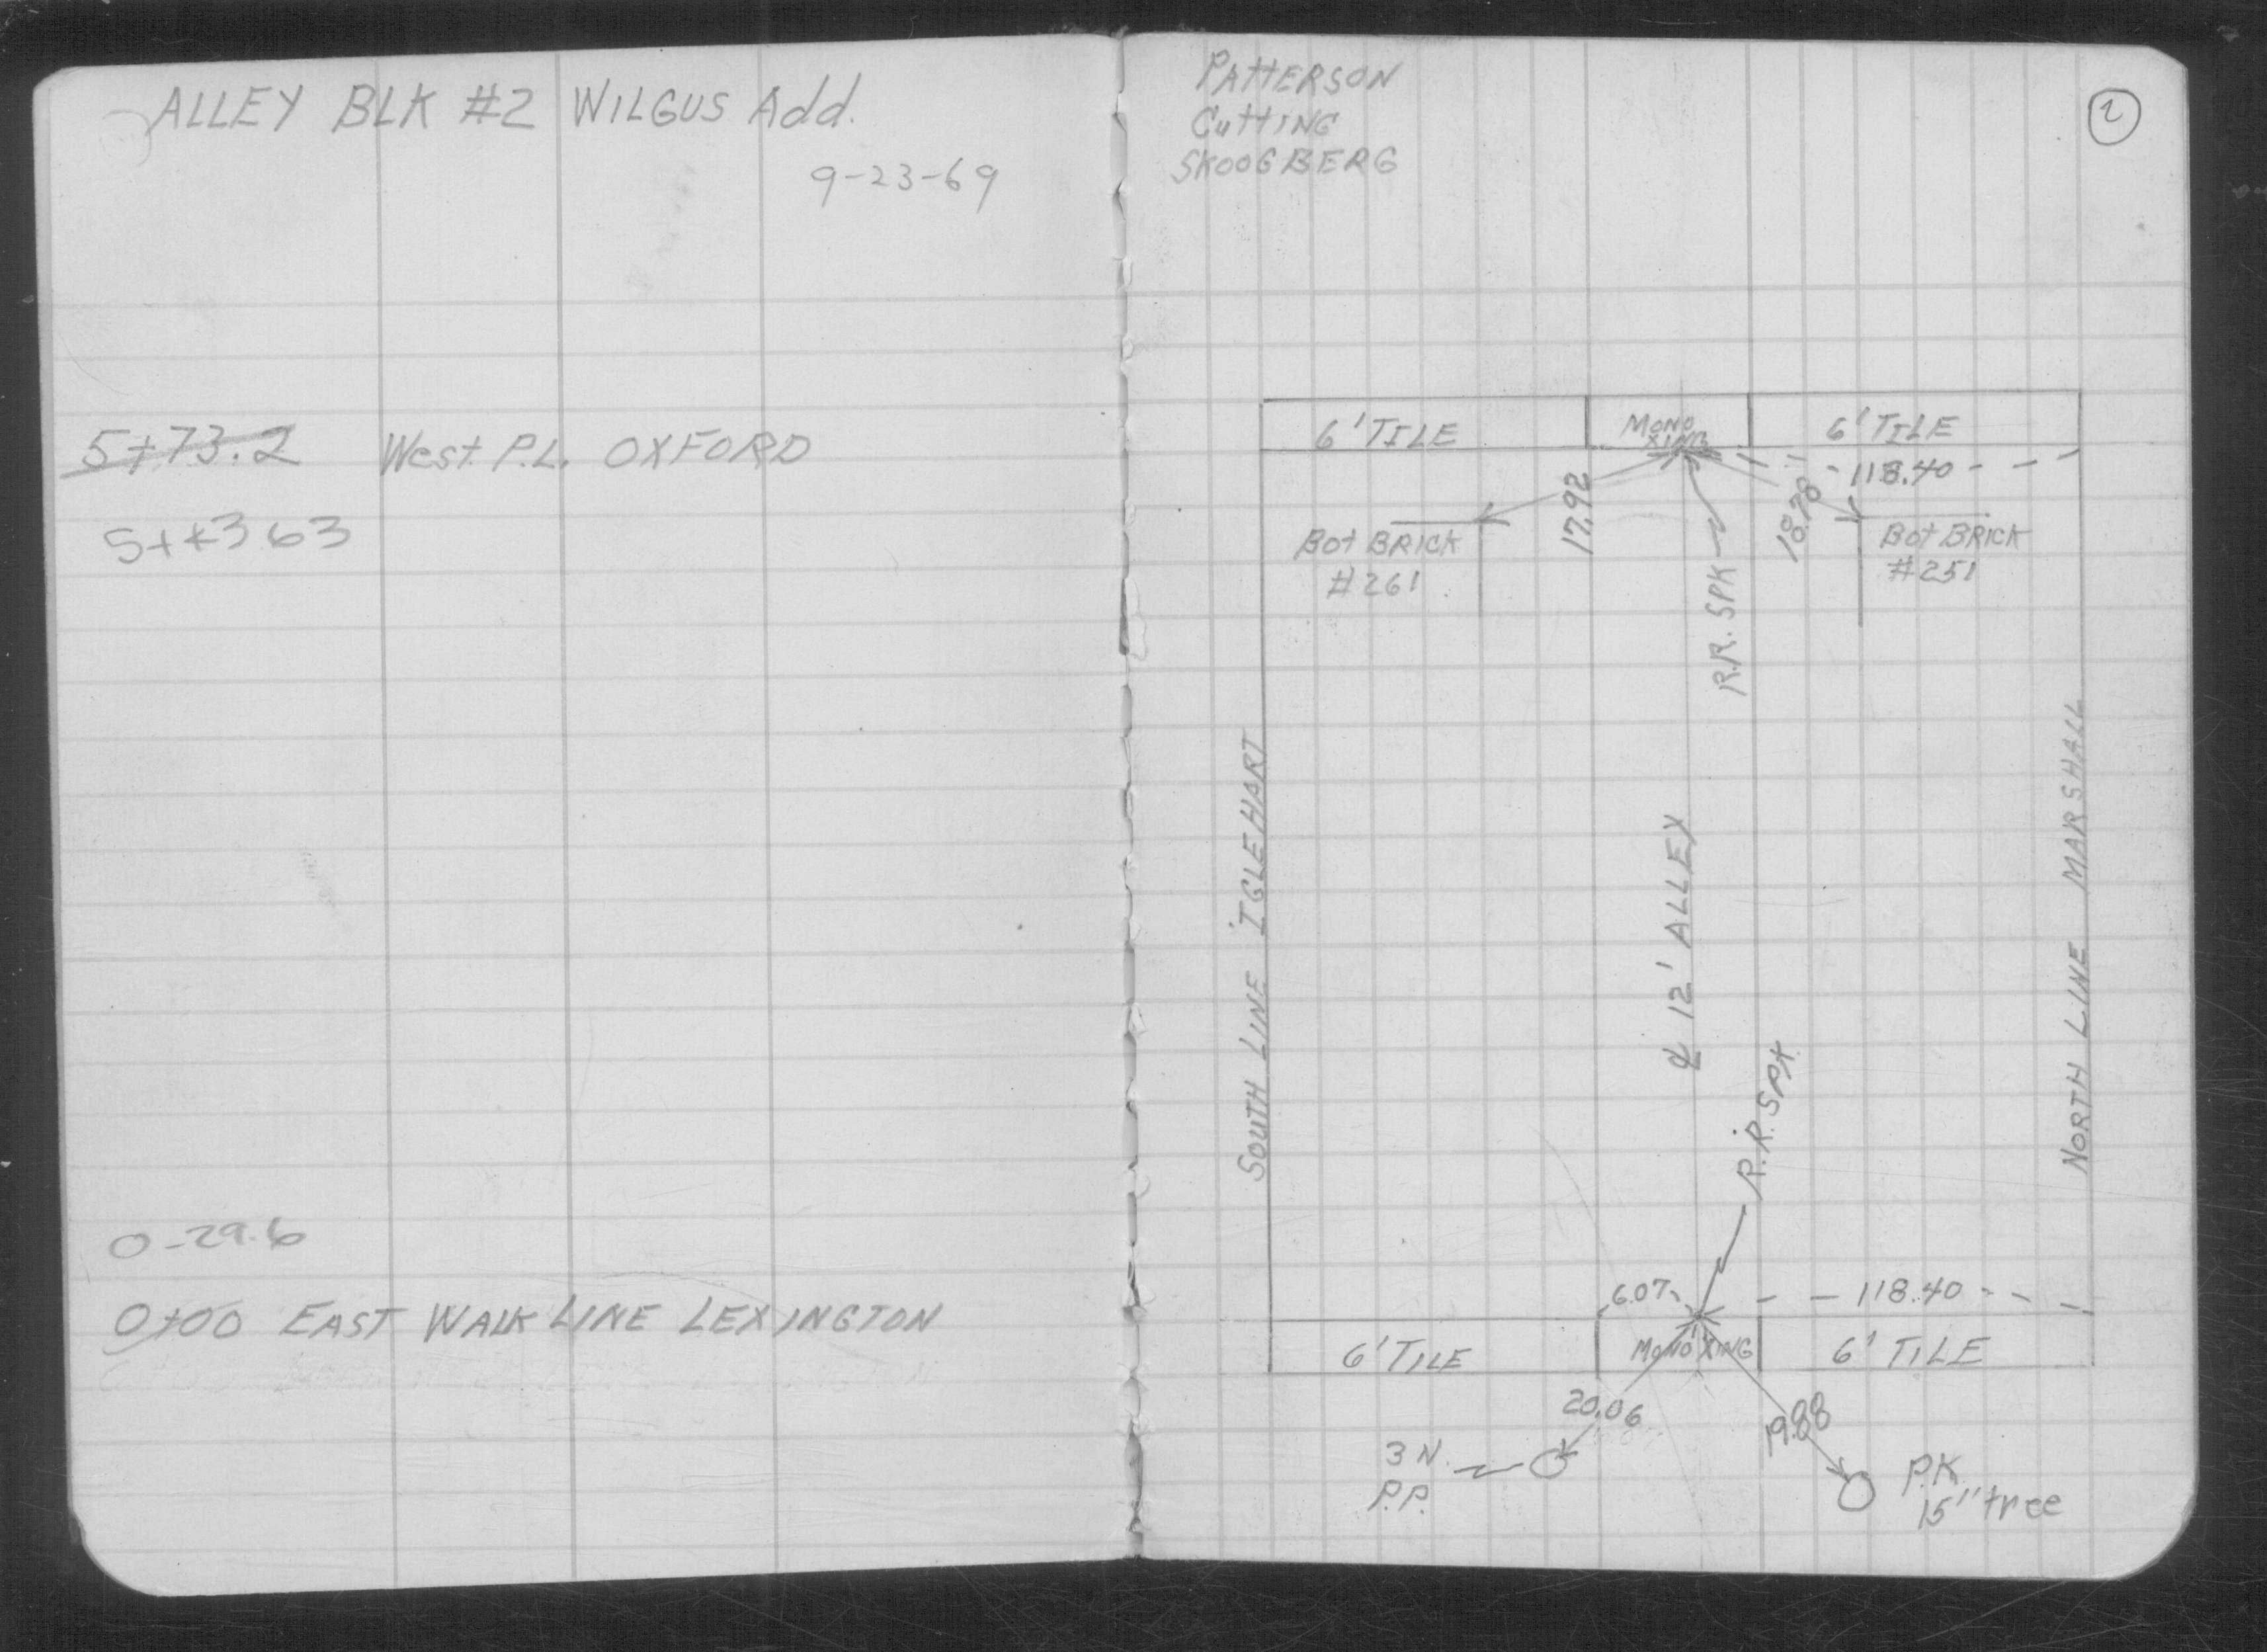 ALLEY BLK #2 WILGUS Add.
9-23-69
5+73.2 West P.L. OXFORD
0-29.6
0+00 EAST WALK LINE LEXINGTON
PATTERSON
CuttING
SKOOGBERG
2
6' TILE
MONO
XING
6' TILE
118.40
17.92
18.78
Bot BRICK
#261
R.R. SPK
Bot BRICK
#251
SOUTH LINE IGLEHART
℄ 12' ALLEY
NORTH LINE MARSHALL
R.R. SPK
6.07
118.40
6' TILE
MONO XING
6' TILE
20.06
19.88
3 N.
P.P.
P.K
15" tree